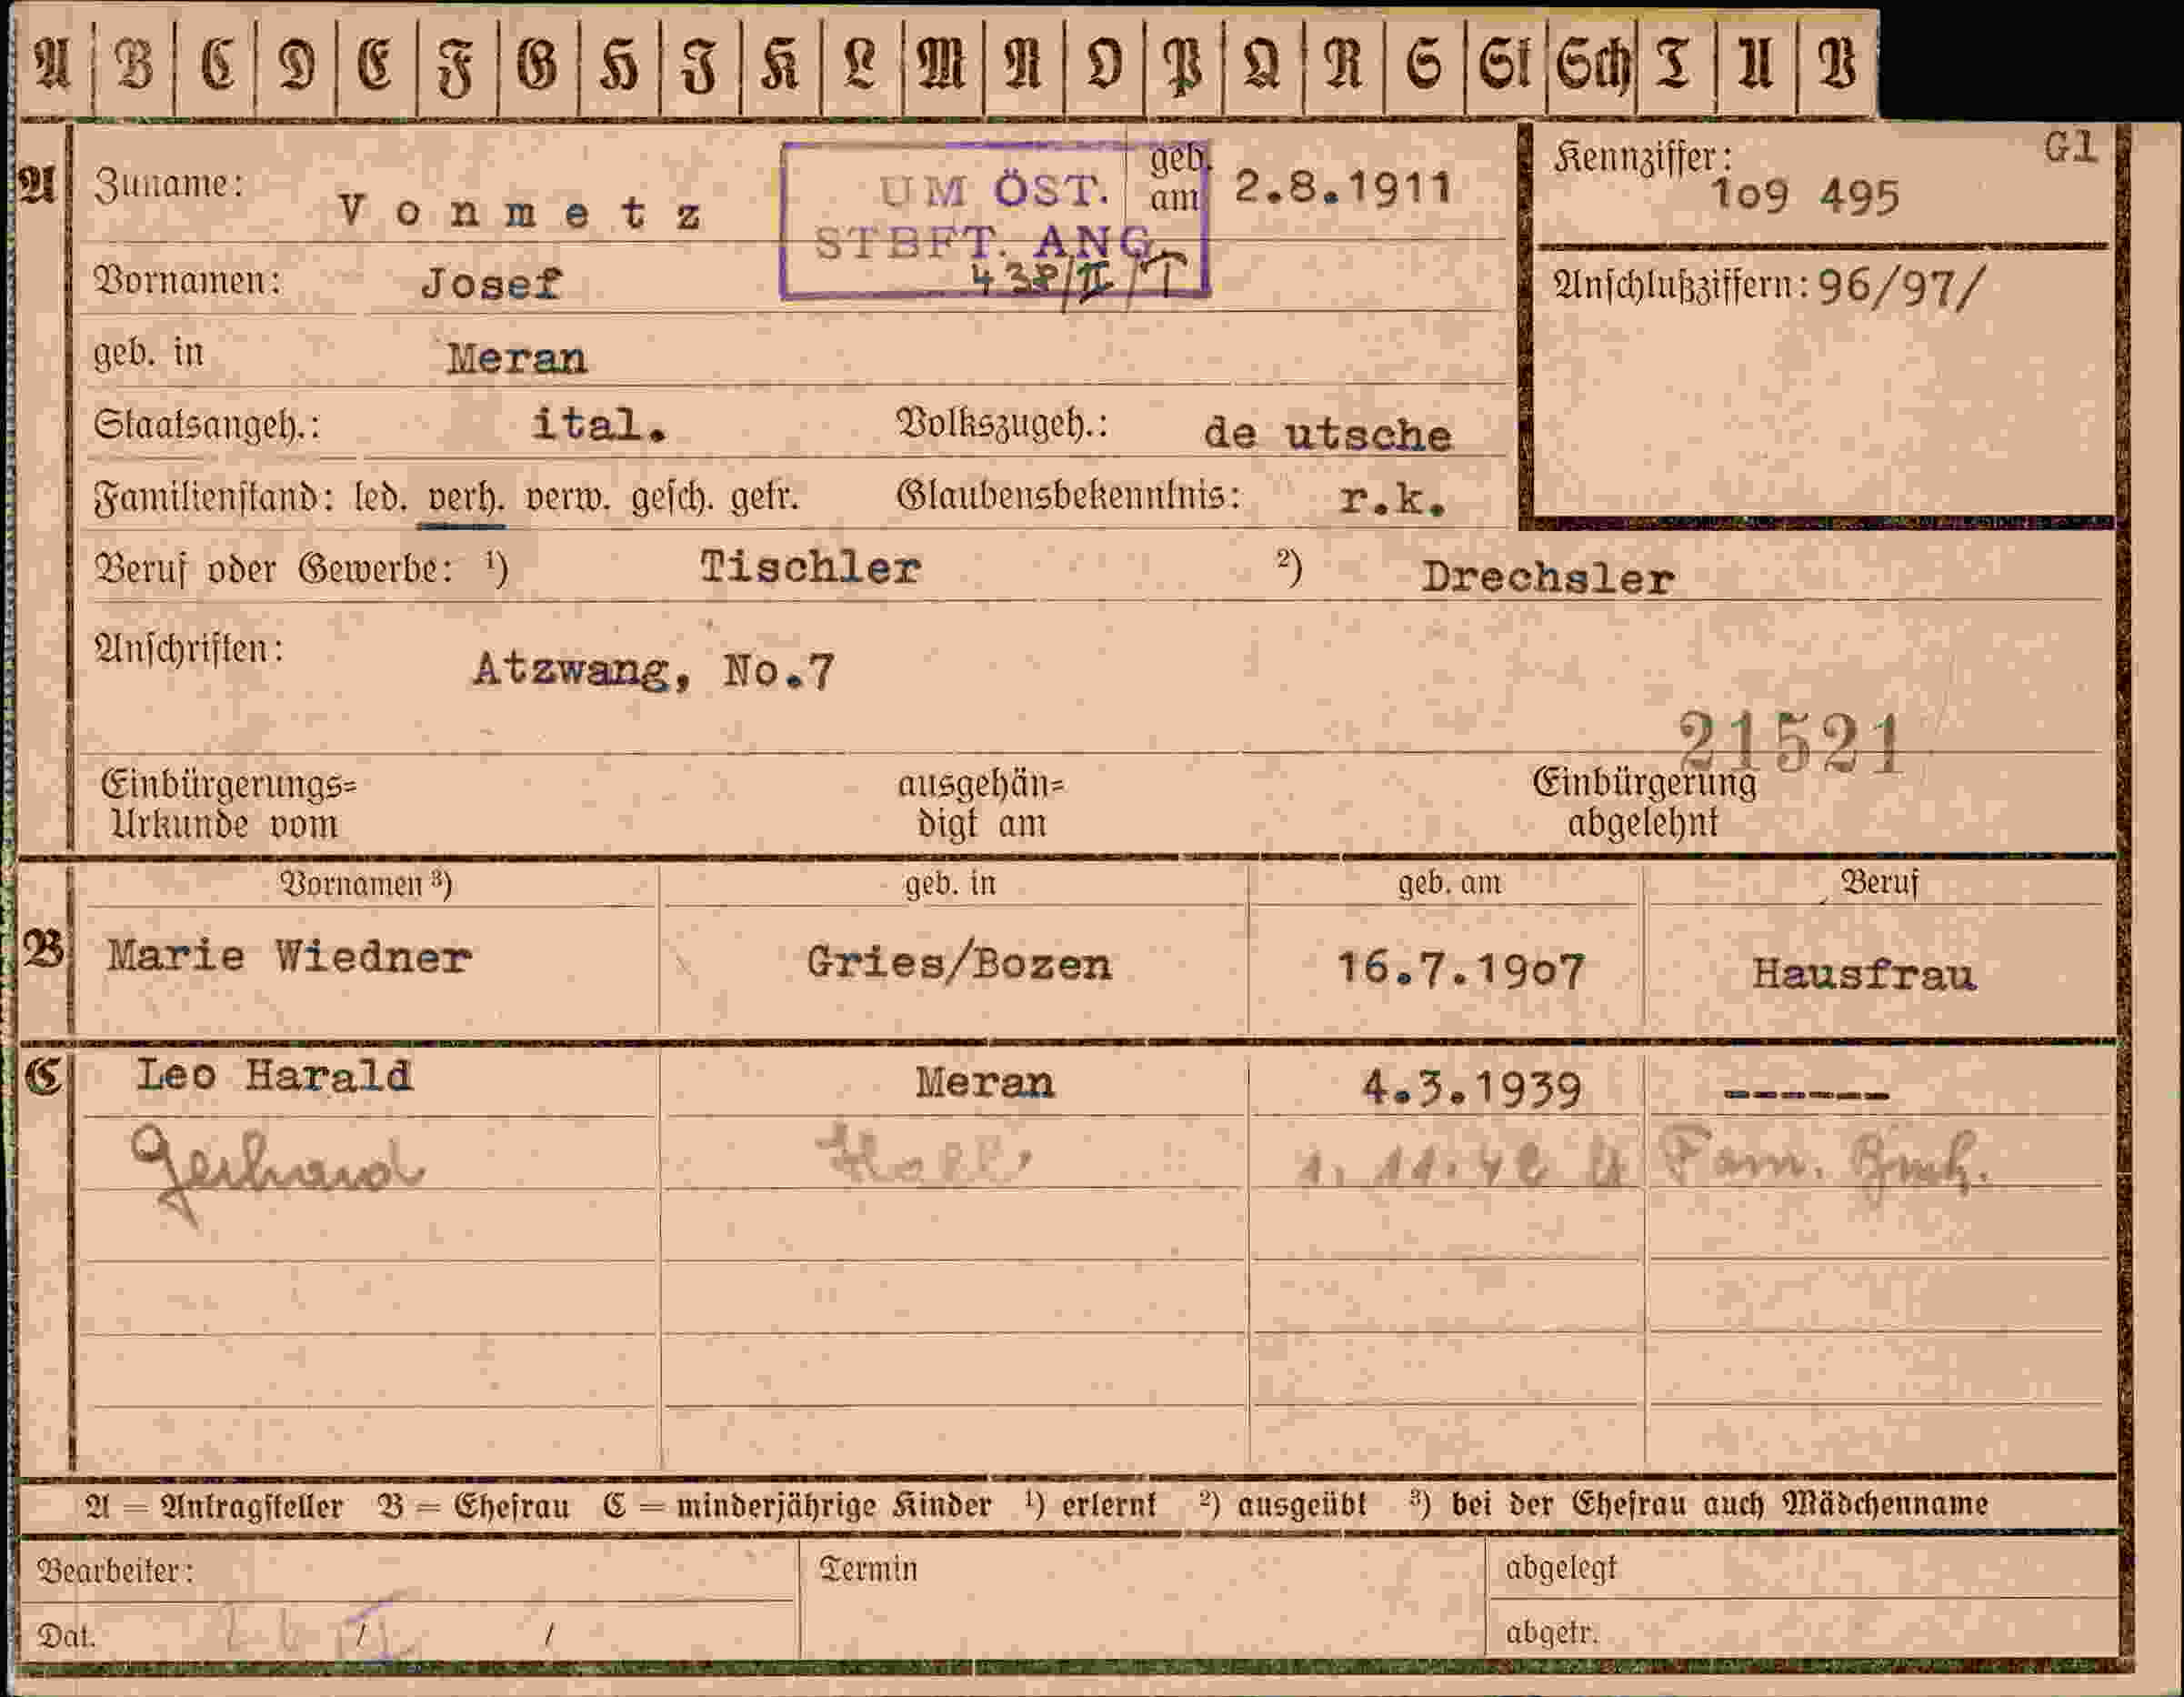 A B C D E F G H I K L M N O P Q R S St Sch T U V
G1
A Zuname: Vonmetz geb. am 2.8.1911
UM ÖST.
STBFT. ANG.
Kennziffer: 1o9 495
Vornamen: Josef
Anschlußziffern: 96/97/
geb. in Meran
Staatsangeh.: ital. Volkszugeh.: de utsche
Familienstand: led. verh. verw. gesch. getr. Glaubensbekenntnis: r.k.
Beruf oder Gewerbe: 1) Tischler 2) Drechsler
Anschriften: Atzwang, No.7
21521
Einbürgerungs= Urkunde vom
ausgehän= digt am
Einbürgerung abgelehnt
Vornamen 3) geb. in geb. am Beruf
B Marie Wiedner Gries/Bozen 16.7.19o7 Hausfrau
C Leo Harald Meran 4.3.1939 ------
Gerhard 1.11.42 Fam.
A = Antragsteller B = Ehefrau C = minderjährige Kinder 1) erlernt 2) ausgeübt 3) bei der Ehefrau auch Mädchenname
Bearbeiter: Termin abgelegt
Dat. / / abgetr.